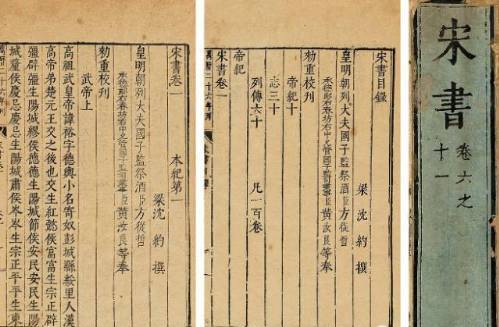 宋書
卷六之
十一
宋書目錄
梁沈約撰
皇明朝列大夫國子監祭酒臣方從哲
承德郎右春坊右中允管國子監司業事臣黃汝良等奉
勅重校刊
帝紀十
志三十
列傳六十 凡一百卷
帝紀
宋書卷一
宋書卷一 本紀第一
梁沈約撰
皇明朝列大夫國子監祭酒臣方從哲
承德郎右春坊右中允管國子監司業事臣黃汝良等奉
勅重校刊
武帝上
高祖武皇帝諱裕字德輿小名寄奴彭城縣綏里人漢
高帝弟楚元王交之後也交生紅懿侯富富生宗正辟
彊辟彊生陽城繆侯德德生陽城節侯安民安民生陽
城釐侯慶忌慶忌生陽城肅侯岑岑生宗正平平生東